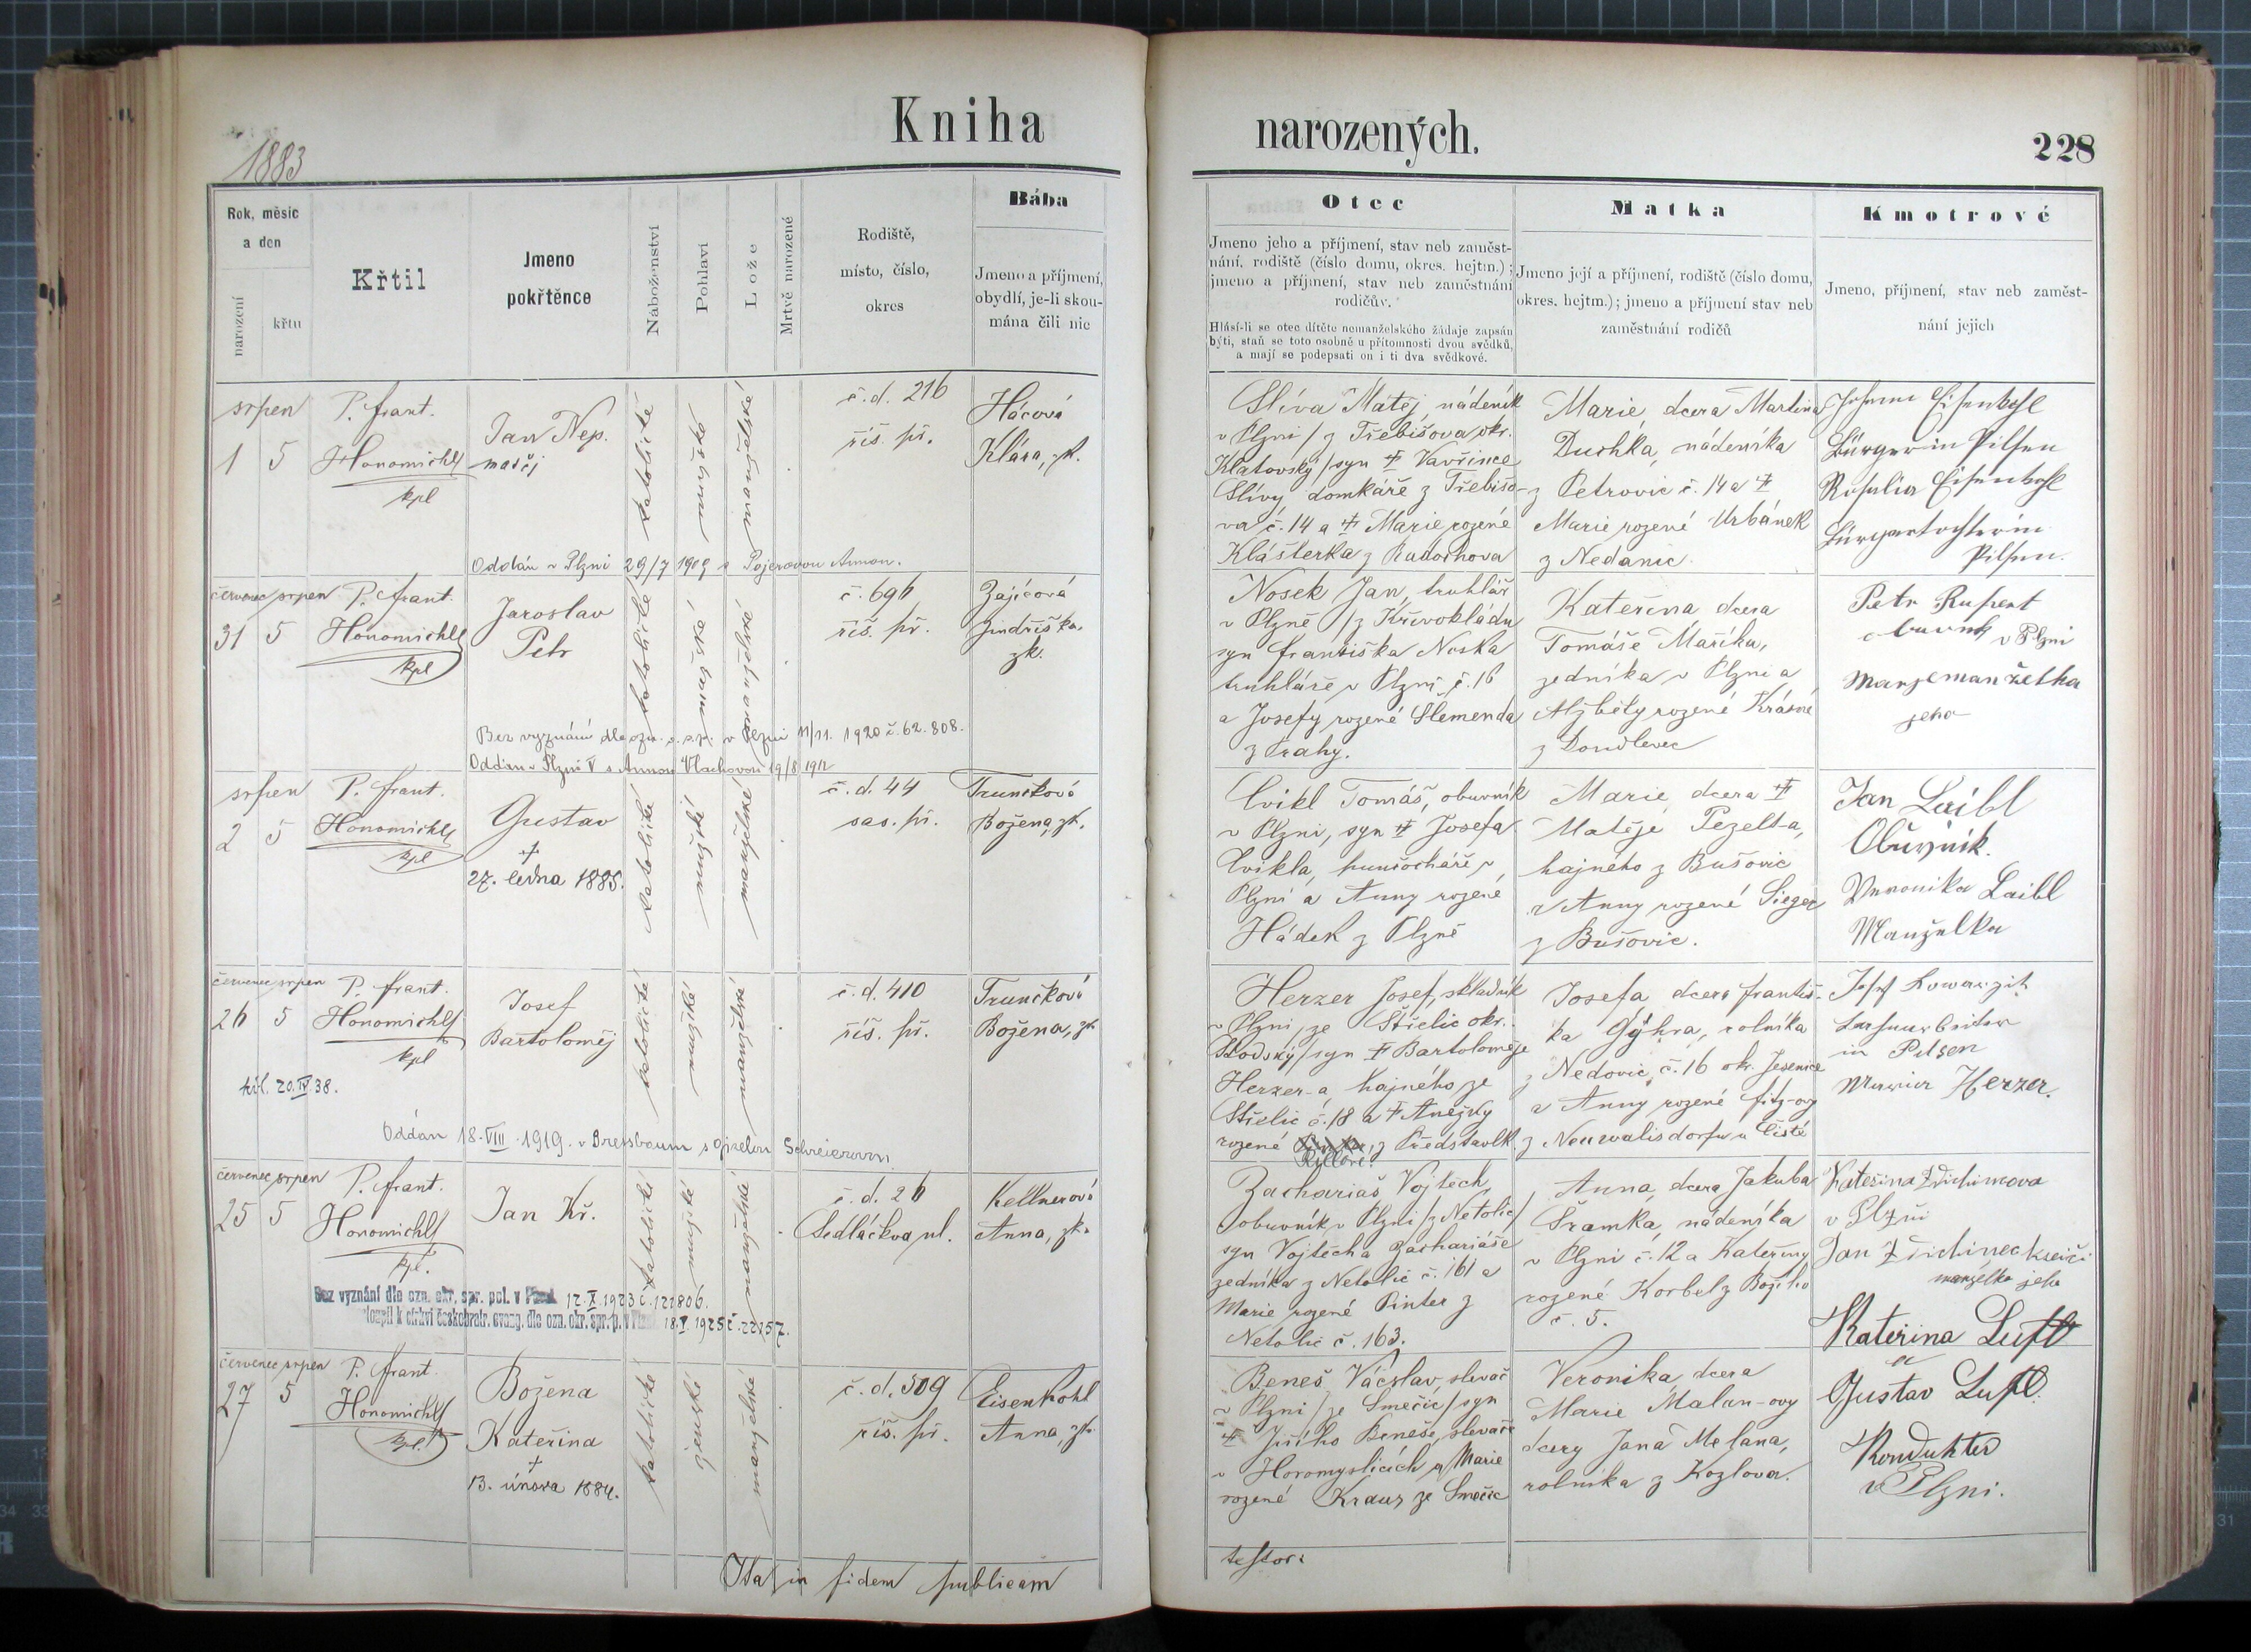 Kniha
narozených.
228
1883
Rok, měsíc
a den
narození
křtu
Křtil
Jmeno
pokřtěnce
Náboženství
Pohlaví
Lože
Mrtvě narozené
Rodiště,
místo, číslo,
okres
Bába
Jmeno a příjmení,
obydlí, je-li skou-
mána čili nic
Otec
Jmeno jeho a příjmení, stav neb zaměst-
nání, rodiště (číslo domu, okres. hejtm.);
jmeno a příjmení, stav neb zaměstnání
rodičův.
Hlásí-li se otec dítěte nemanželského žádaje zapsán
býti, staň se toto osobně u přítomnosti dvou svědků,
a mají se podepsati on i ti dva svědkové.
Matka
Jmeno její a příjmení, rodiště (číslo domu,
okres. hejtm.); jmeno a příjmení stav neb
zaměstnání rodičů
Kmotrové
Jmeno, příjmení, stav neb zaměst-
nání jejich
srpen
1 5
P. Frant.
Honomichl
kpl
Jan Nep.
katolické
mužské
manželské
č. d. 216
říš. př.
Hácová
Klára, zk.
Slíva Matěj, nádeník
v Plzni / z Třebišova okr.
Klatovský / syn † Vavřince
Slívy domkáře z Třebišo-
va č. 14 a † Marie rozené
Klášterka z Radochova
Marie, dcera Martina
Duchka, nádeníka
z Petrovic č. 14 a †
Marie rozené Urbánek
z Nedanic
Johann Eisenkohl
Bürger in Pilsen
Rosalia Eisenkohl
Bürgertochter in
Pilsen.
Oddán v Plzni 29/7 1909 s Annou.
červenec srpen
31 5
P. Frant.
Honomichl
kpl
Jaroslav
Petr
katolické
mužské
manželské
č. 696
říš. př.
Zajícová
Jindřiška,
zk.
Nosek Jan, truhlář
v Plzně / z Křivokládu
syn Františka Noska
truhláře v Plzni č. 16
a Josefy rozené Slemenda
z Prahy.
Kateřina, dcera
Tomáše Maříka,
zedníka v Plzni a
Alžběty rozené Krásné
z Domdlevec
Petr Rupert
obuvník v Plzni
manželka
jeho
Bez vyznání dle ozn. o. s. p. v Plzni 11/11. 1920 č. 62.808.
Oddán v Plzni V s Annou Vlachovou 19/8 1912
srpen
2 5
P. Frant.
Honomichl
kpl
Gustav
†
27. ledna 1885.
katolické
mužské
manželské
č. d. 44
sas. př.
Trunčková
Božena, zk.
Cvikl Tomáš, obuvník
v Plzni, syn † Josefa
Cvikla, punčocháře v
Plzni a Anny rozené
Hádek z Plzně
Marie, dcera †
Matěje Pezelt-a,
hajného z Bušovic
a Anny rozené Sieger
z Bušovic.
Jan Laibl
Obuvník.
Veronika Laibl
Manželka
červenec srpen
26 5
P. Frant.
Honomichl
kpl
Josef
Bartoloměj
katolické
mužské
manželské
č. d. 410
říš. př.
Trunčková
Božena, zk.
20.IV 38.
Herzer Josef, skladník
v Plzni, ze Střelic okr.
Stodský / syn † Bartoloměje
Herzer-a, hajného ze
Střelic č. 18 a † Anežky
rozené z Předslavi
Josefa, dcera Františ-
ka Gýhra, rolníka
z Nedovic, č. 16 okr. Jesenice
a Anny rozené Fitz-ovy
z Neuwalisdorfu u Čisté
Josef
in Pilsen
Maria Herzer.
Oddán 18.VIII.1919. v Pressbaum s Schreierovou
červenec srpen
25 5
P. Frant.
Honomichl
kpl.
Jan Kř.
katolické
mužské
manželské
č. d. 26
Sedláčkova ul.
Kellnerová
Anna, zk.
Zachariáš Vojtěch,
obuvník v Plzni / z Netolic /
syn Vojtěcha Zachariáše
zedníka z Netolic č. 161 a
Marie rozené Pinter z
Netolic č. 163.
Anna, dcera Jakuba
Šramka, nádeníka
v Plzni č. 12 a Kateřiny
rozené Korbel z Božího
č. 5.
Kateřina
v Plzni
Jan krejčí
manželka jeho
Bez vyznání dle ozn. okr. spr. pol. v Plzni 12.X.1923 č. 122806.
vstoupil k církvi českobratr. evang. dle ozn. okr. spr. p. v Plzni 18.V.1925 č. 22157.
červenec srpen
27 5
P. Frant.
Honomichl
kpl.
Božena
Kateřina
†
13. února 1884.
katolické
ženské
manželské
č. d. 509
říš. př.
Eisenkohl
Anna, zk.
Beneš Václav, slevač
v Plzni / ze Smečic / syn
† Jiřího Beneše, slevače
v Horomyslicích a Marie
rozené Kraus ze Smečic
Veronika, dcera
Marie Malan-ovy
dcery Jana Melana,
rolníka z Kozlova.
Kateřina Luft
a
Gustav Luft.
Kondukter
v Plzni.
Ita in fidem publicam
testor: